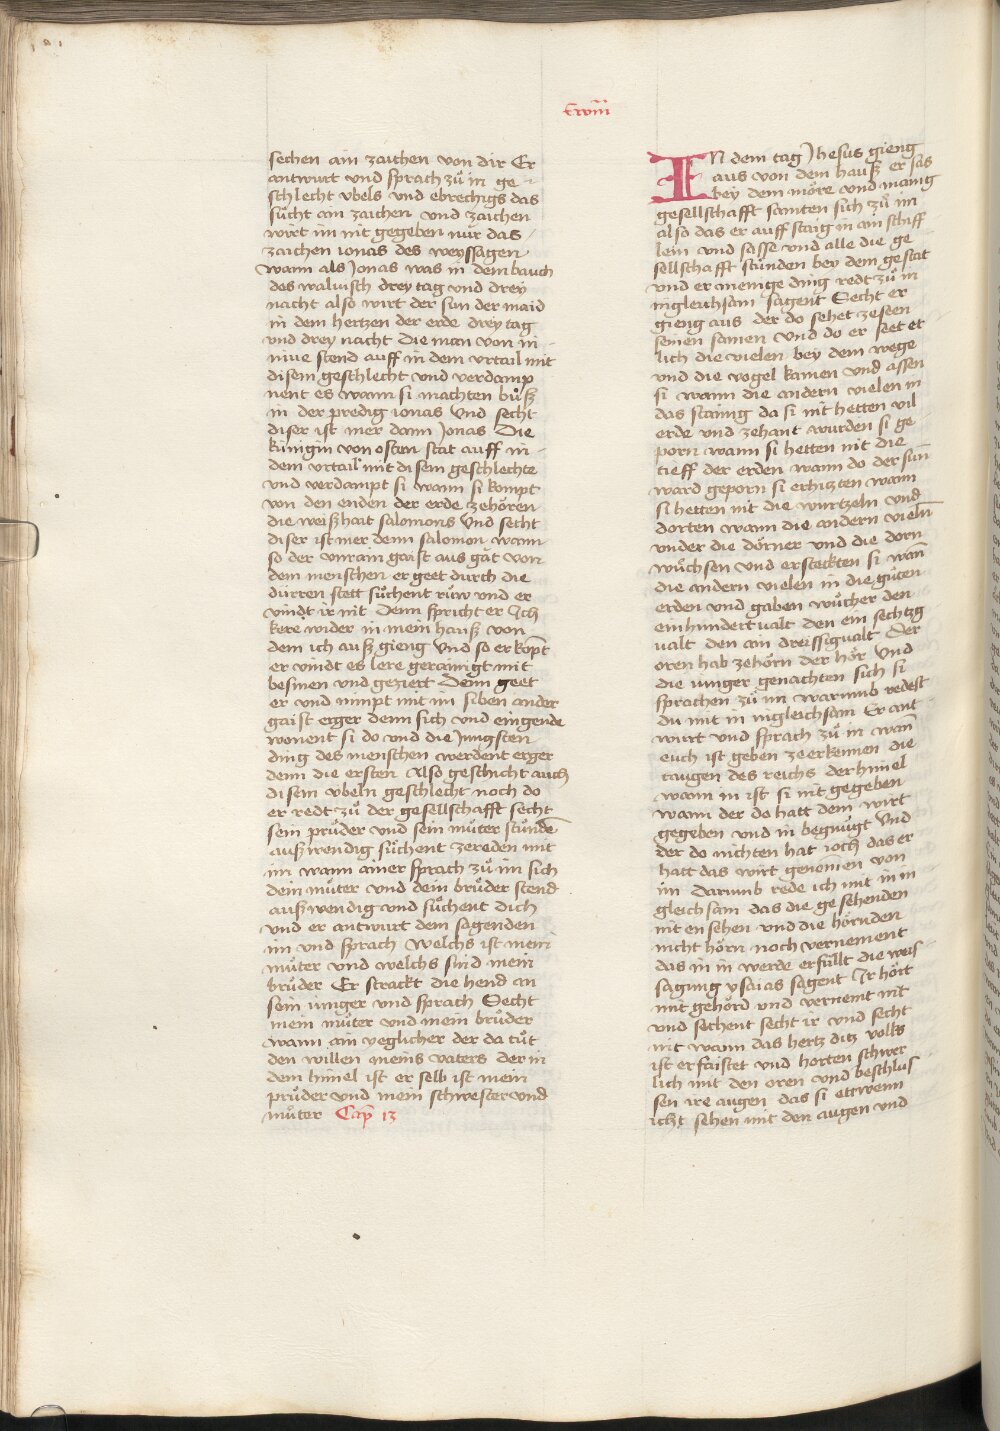 sechen ain zaichen von dir Er
antwurt und sprach zů in ge
schlecht vbels und ebrechigs das
sůcht ain zaichen und zaichen
wirt im nit gegeben nůr das
zaichen ionas des weyssagen
wann als Jonas was in dem bauch
des walvisch drey tag und drey
nacht also wirt der sun der maid
in dem hertzen der erde drey tag
und drey nacht Die man von ni
nive stend auff in dem vrtail mit
disem geschlecht und verdamp
nent es wann si machten bůß
in der predig ionas Und secht
diser ist mer dann Jonas Die
künigin von osten stat auff in
dem vrtail mit disem geschlechte
und verdampt si wann si kompt
von den enden der erde zehören
die weißhait salomons Und secht
diser ist mer denn salomon wann
so der vnrain gaist aus gät von
dem menschen er geet durch die
dürren stett sůchent růw und er
vindt ir nit Denn spricht er Ich
kere wider in mein hauß von
dem ich auß gieng Und so er kompt
er vindt es lere gerainigt mit
besmen und geziert Denn geet
er und nimpt mit im siben ander
gaist erger denn sich und eingende
wonent si do und die Jungsten
ding des menschen werdent erger
denn die ersten Also geschicht auch
disem vbeln geschlecht noch do
er redt zů der gesellschafft secht
sein průder und sein můter stůnden̄
außwendig sůchent zereden mit
im wann ainer sprach zů im sich
dein můter und dein brůder stend
außwendig und sůchent dich
und er antwurt dem sagenden
im und sprach welchs ist mein
můter und welchs sind mein
brůder Er strackt die hend in
sein iunger und sprach Secht
mein můter und mein brůder
wann ain yeglicher der da tůt
den willen meins vaters der in
dem himel ist er selb ist mein
průder und mein schwester und
můter Cap̄ 13
IN dem tag Jhesus gieng
aus von dem hauß er sas
bey dem möre und manig
gesellschafft samten sich zů im
also das er auff staig in ain schiff
lein und sasse und alle die ge
sellschafft stůnden bey dem gestat
und er menige ding redt zů in
in gleichsam sagent Secht er
gieng aus der do sehet zeseen
seinen samen Und do er seet et
lich die vielen bey dem wege
und die vogel kamen und assen
si wann die andern vielen in
das stainig da si nit hetten vil
erde und zehant wurden si ge
porn wann si hetten nit die
tieff der erden wann do der sun̄
ward geporn si erhizten wann
si hetten nit die wurtzeln und
dorten wann die andern vieln̄
vnder die dörner und die dorn
wůchsen und ersteckten si wan̄
die andern vielen in die gůten
erden und gaben wůcher den
ein hundertvalt den ein sechtzg
valt den ain dreissigvalt Der
oren hab zehörn der hör Und
die iunger genachten sich si
sprachen zů im warumb redest
du mit in in gleichsam Er ant
wurt und sprach zů in wan̄
euch ist geben ze erkennen die
taugen des reichs der himel
wann in ist si nit gegeben
wann der do hatt dem wirt
gegeben und in begnůgt Und
der do nichten hat ioch das er
hatt das wirt genomen von
im Darumb rede ich mit in in
gleichsam das die gesehenden
nit ensehen und die hörnden
nicht hörn noch vernement
das in in werde erfüllt die weis
sagung ysaias sagent Ir hört
mit gehörd und vernemt nit
und sechent secht ir und secht
nit wann das hertz ditz volks
ist erfaistet und horten schwer
lich mit den oren und beschlus
sen ire augen das si ettwenn
icht sehen mit den augen und